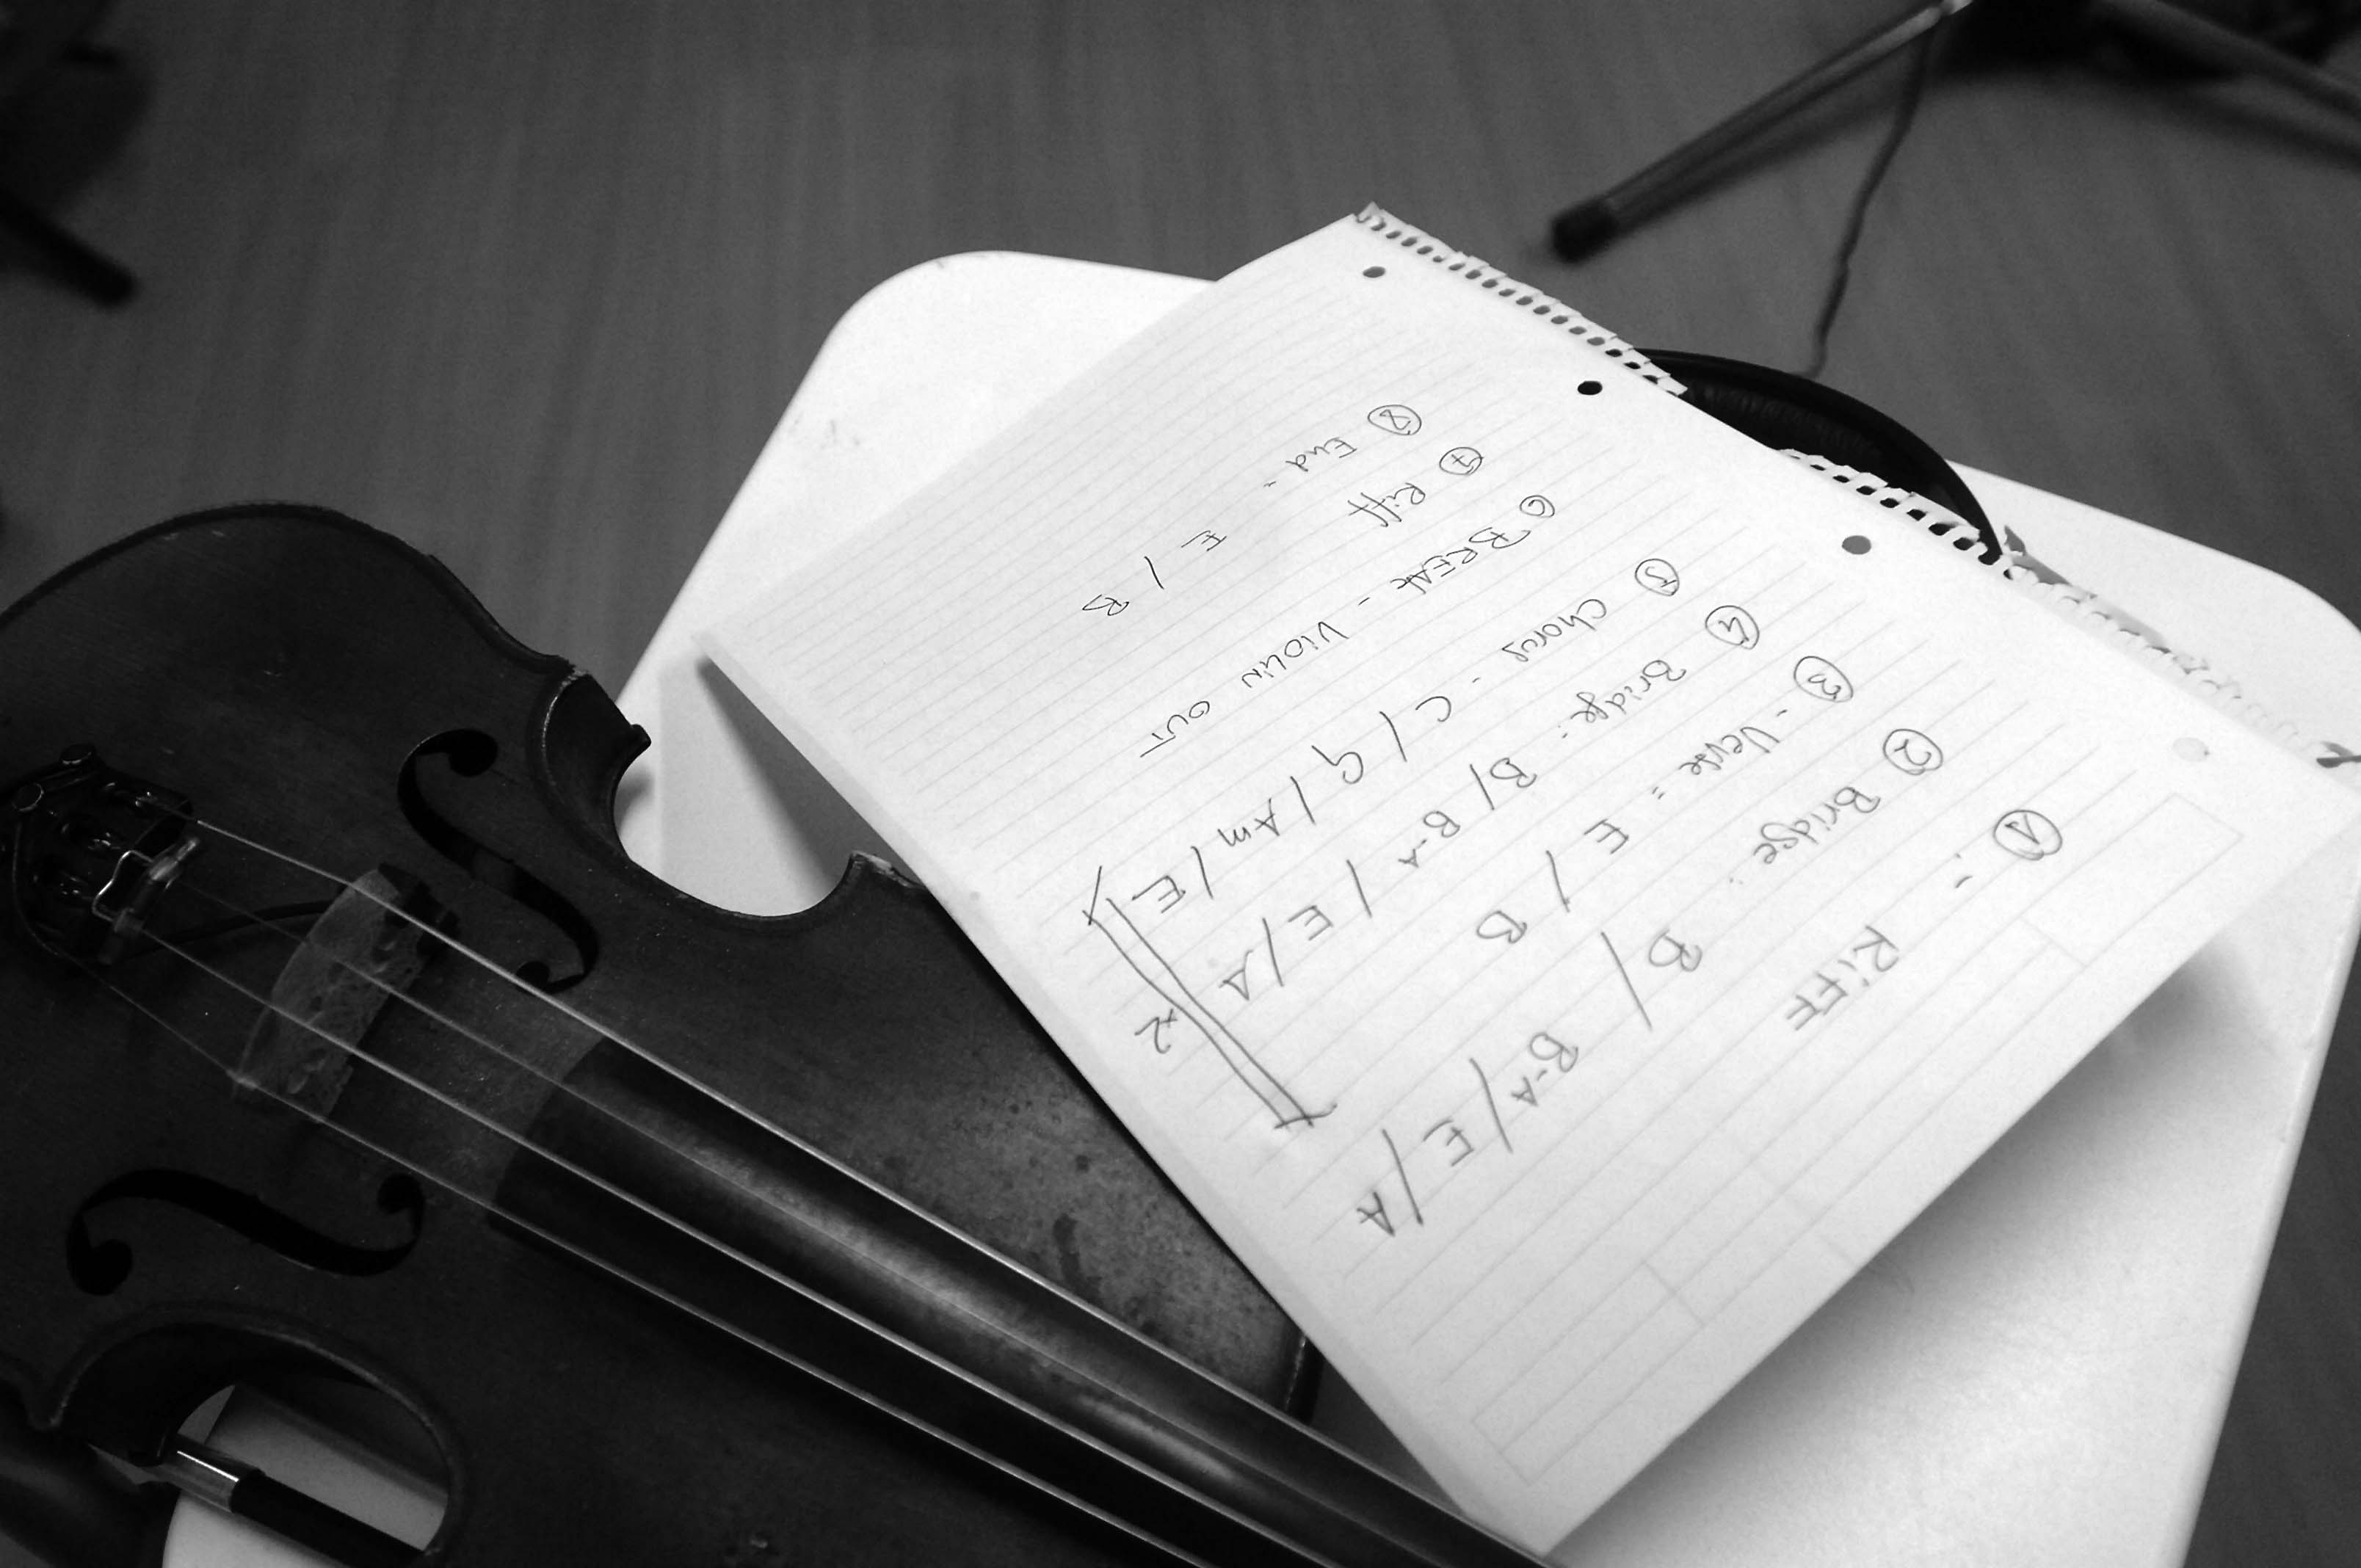 ① :- RiFF
② Bridge: B / B-A / E / A
③ - Verse = E / B
④ Bridge: B / B-A / E / A
⑤ Chorus - C / G / Am / E
x2
⑥ BREAK - VIOLIN OUT
⑦ Riff
⑧ End - E / B